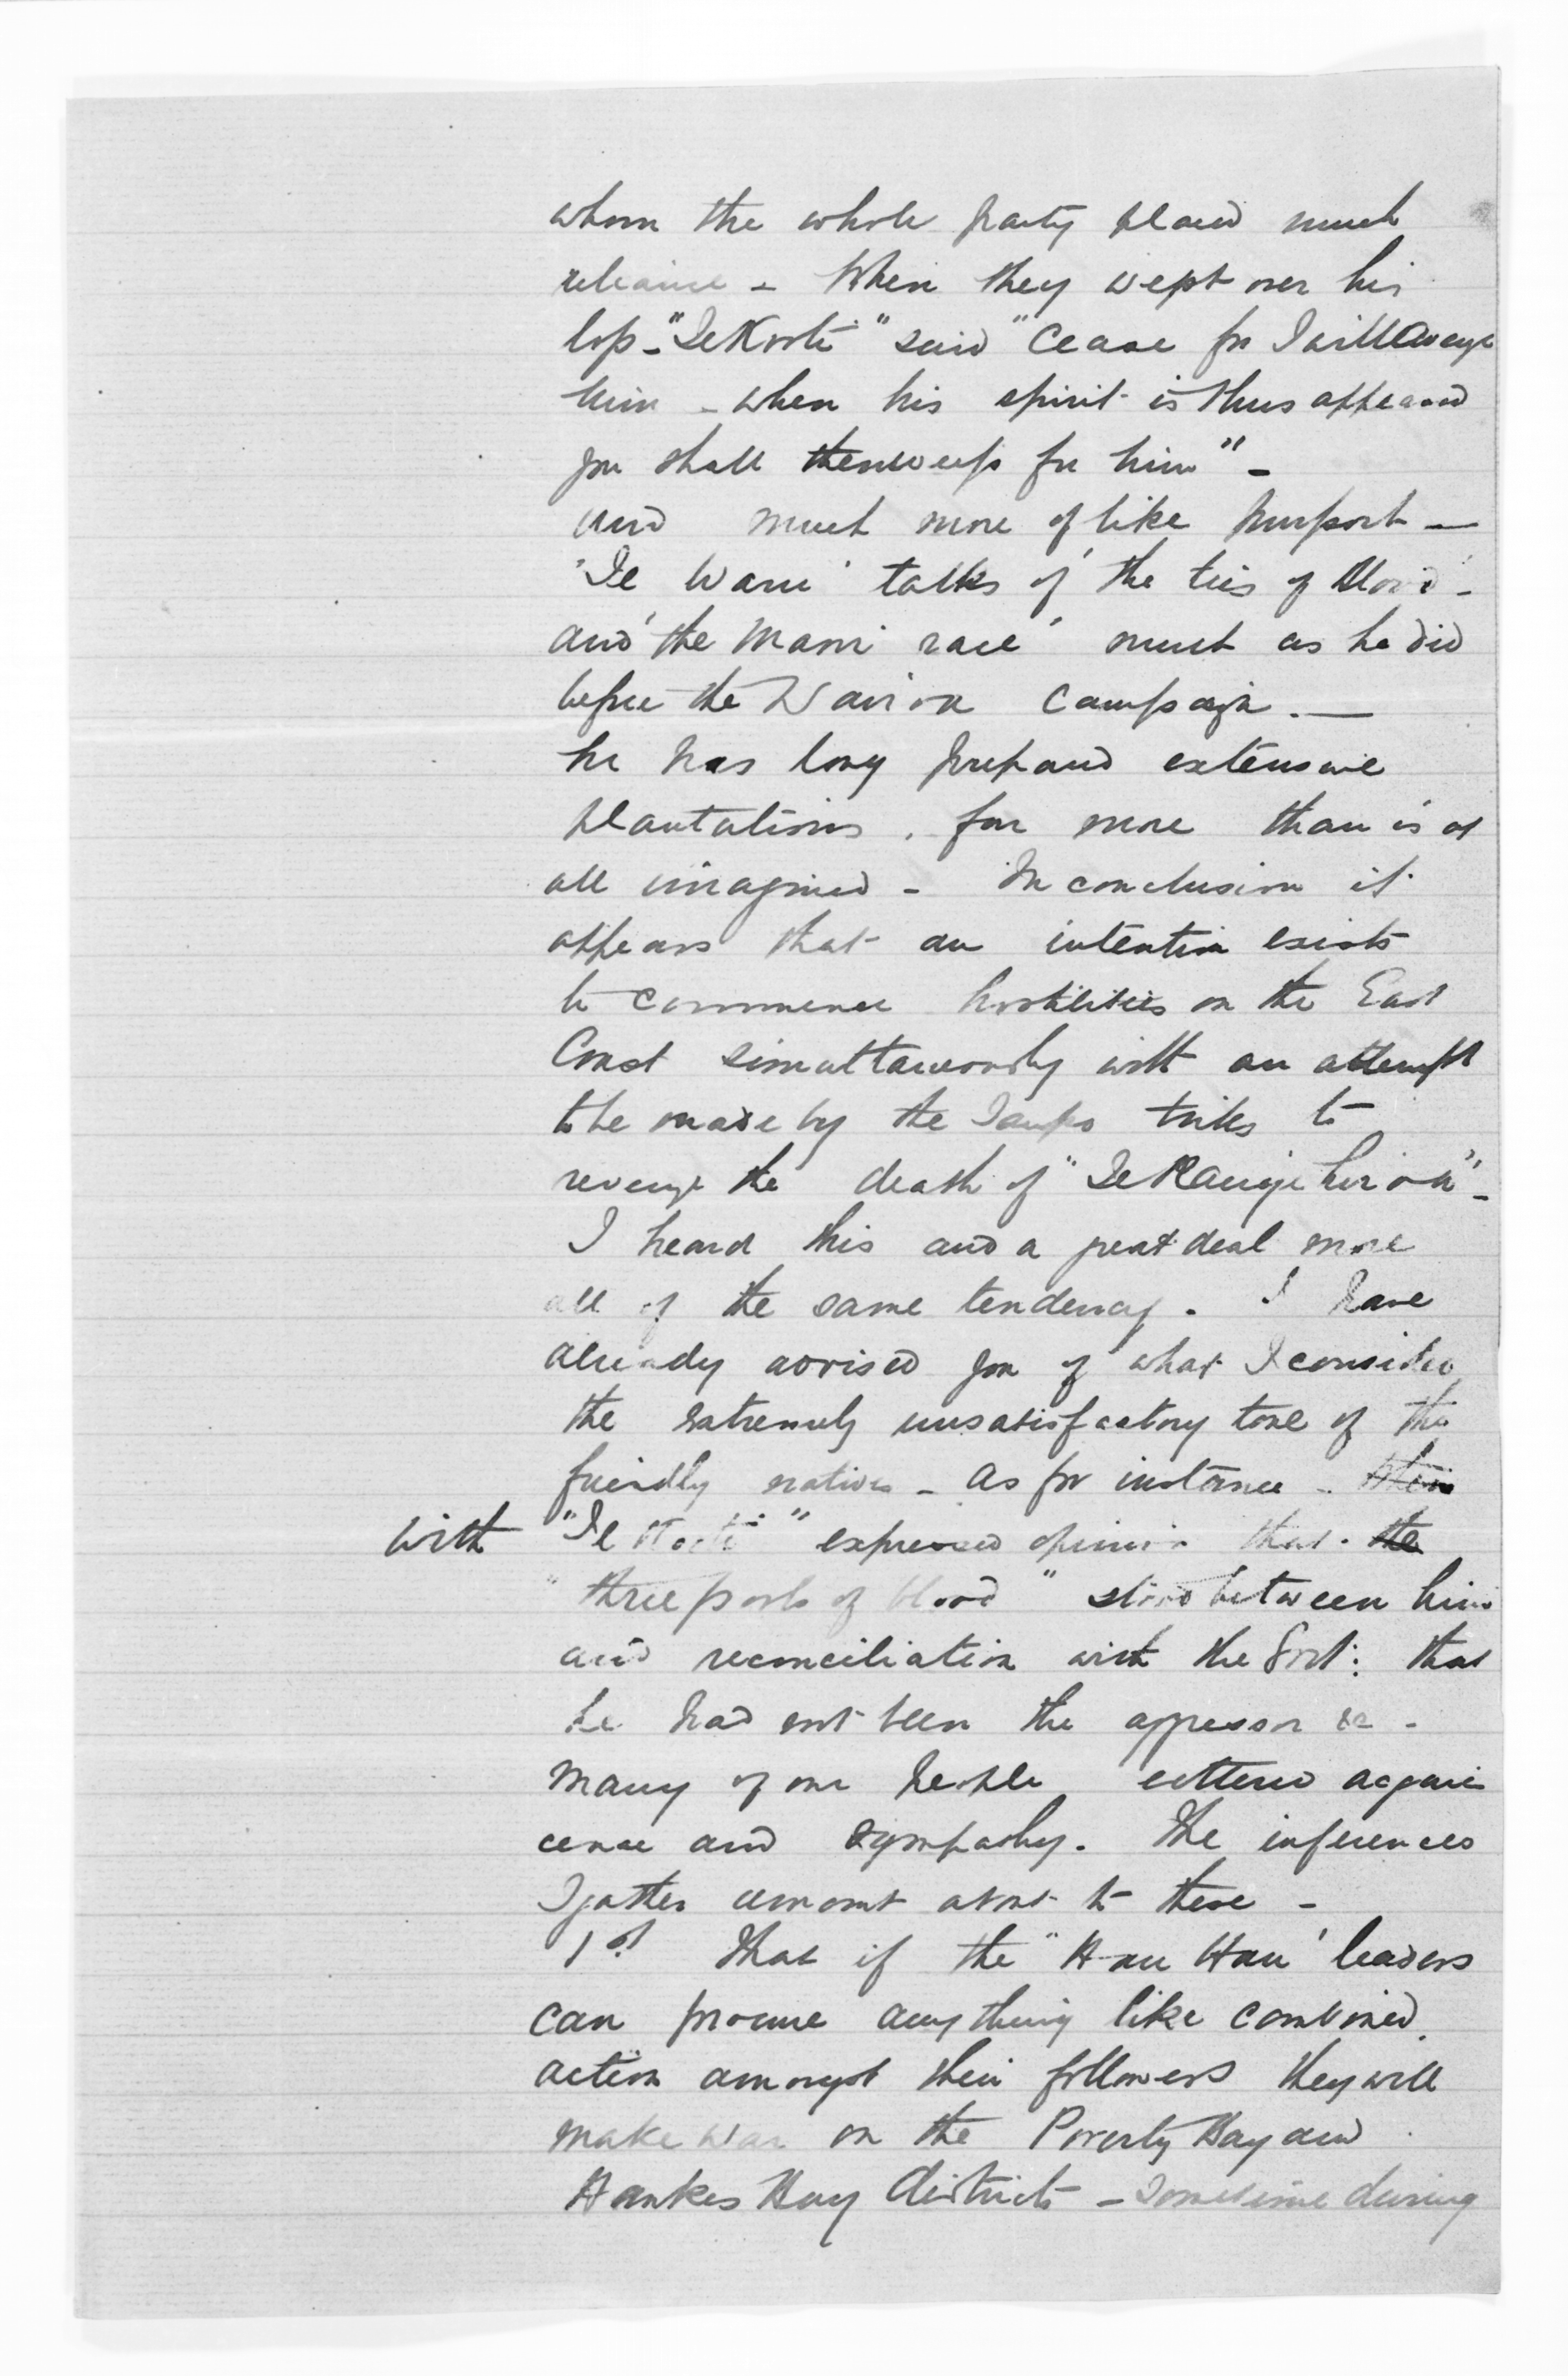 whom the whole party placed much
reliance - When they wept over his
loss - "Te Kooti" said "Cease for I will avenge
him - when his spirit is thus appeased
you shall then weep for him" -
And much more of like purport -
'Te Waru' talks of 'the ties of blood' -
and 'the Maori race' much as he did
before the Wairoa Campaign. -
he has long prepared extensive
plantations, far more than is at
all imagined - In conclusion it
appears that an intention exists
to commence hostilities on the East
Coast simultaneously with an attempt
to be made by the Taupo tribes to
revenge the death of "Te Rangihiroa" -
I heard this and a great deal more
all of the same tendency. I have
already advised you of what I consider
the extremely unsatisfactory tone of the
friendly natives - as for instance -
with "Te Kooti" expressed opinion that the
"three pools of blood" stood between him
and reconciliation with the Govt: that
he had not been the aggressor &c -
Many of our people uttered acquies
cence and sympathy. The inferences
I gather amount about to these -
1st That if the "Hau Hau' leaders
can procure anything like combined
action amongst their followers they will
make war on the Poverty Bay and
Hawkes Bay districts - Sometime during